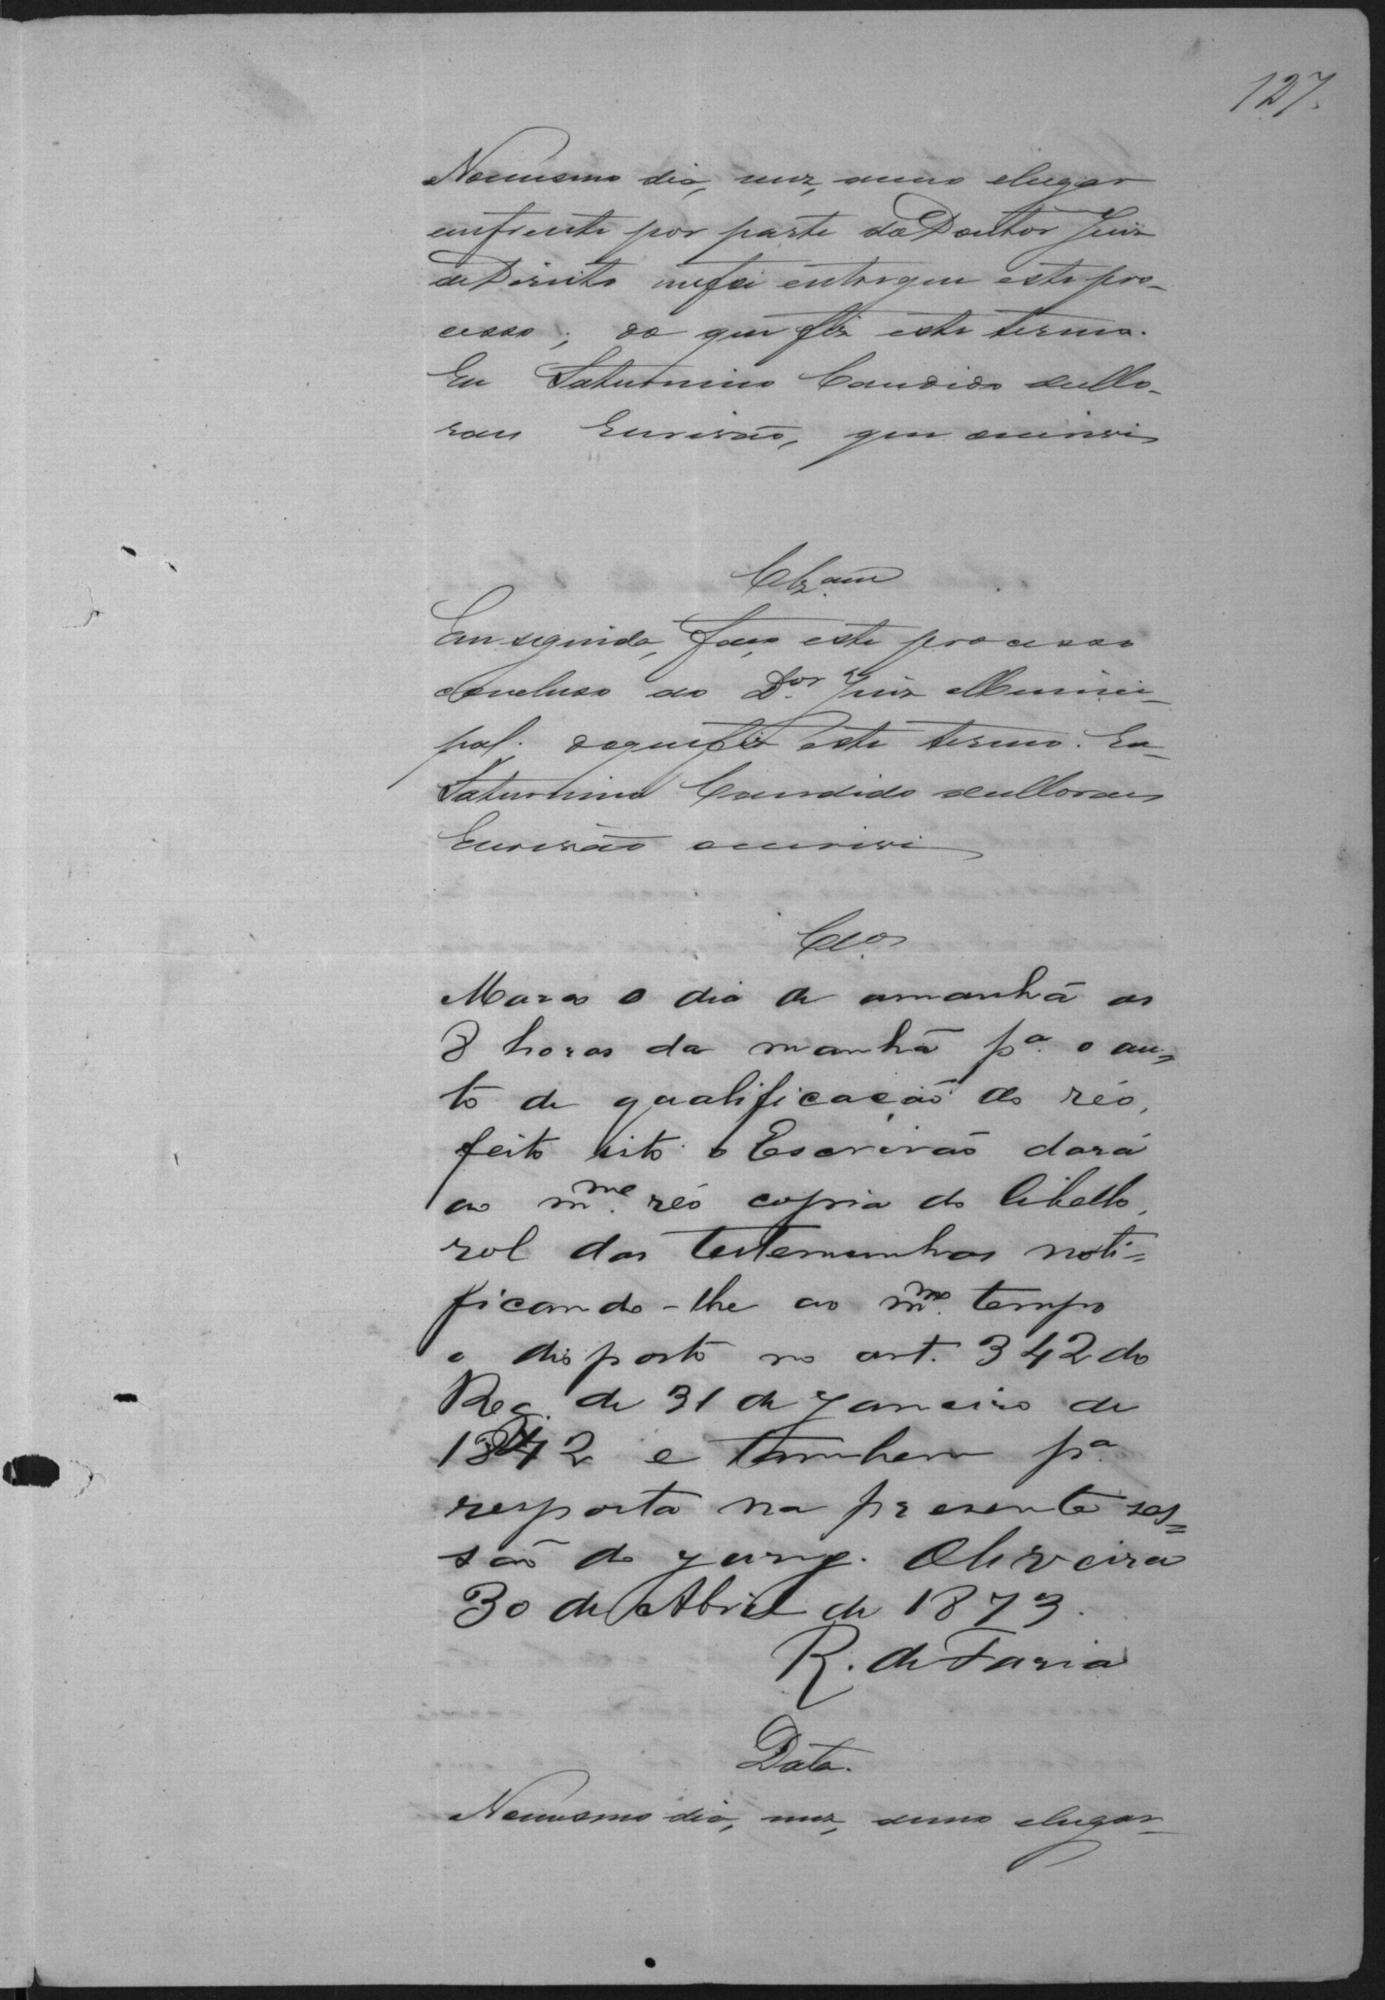 127.
No mesmo dia, mez, anno e lugar
em frente por parte do Doutor Juiz
de Direito me foi entregue este pro-
cesso; do que fiz este termo.
Eu Saturnino Candido
Escrivão, que escrevi
Clzam
Em seguida, faço este processo
concluso ao Dor. Juiz Munici-
pal. do que fiz este termo. Eu
Saturnino Candido
Escrivão escrevi
Clos
Marco o dia de amanhã as
8 horas da manhã pa. o au-
to de qualificação do réo,
feito isto o Escrivão dará
ao mmo. réo copia do libello,
rol das testemunhas noti=
ficando-lhe ao mmo. tempo
o disposto no art. 342 do
Reg. de 31 de Janeiro de
1842 e tambem pa.
resposta na presente ses=
são do jury. Oliveira
30 de Abril de 1873.
R. de Faria
Data.
No mesmo dia, mez, anno e lugar